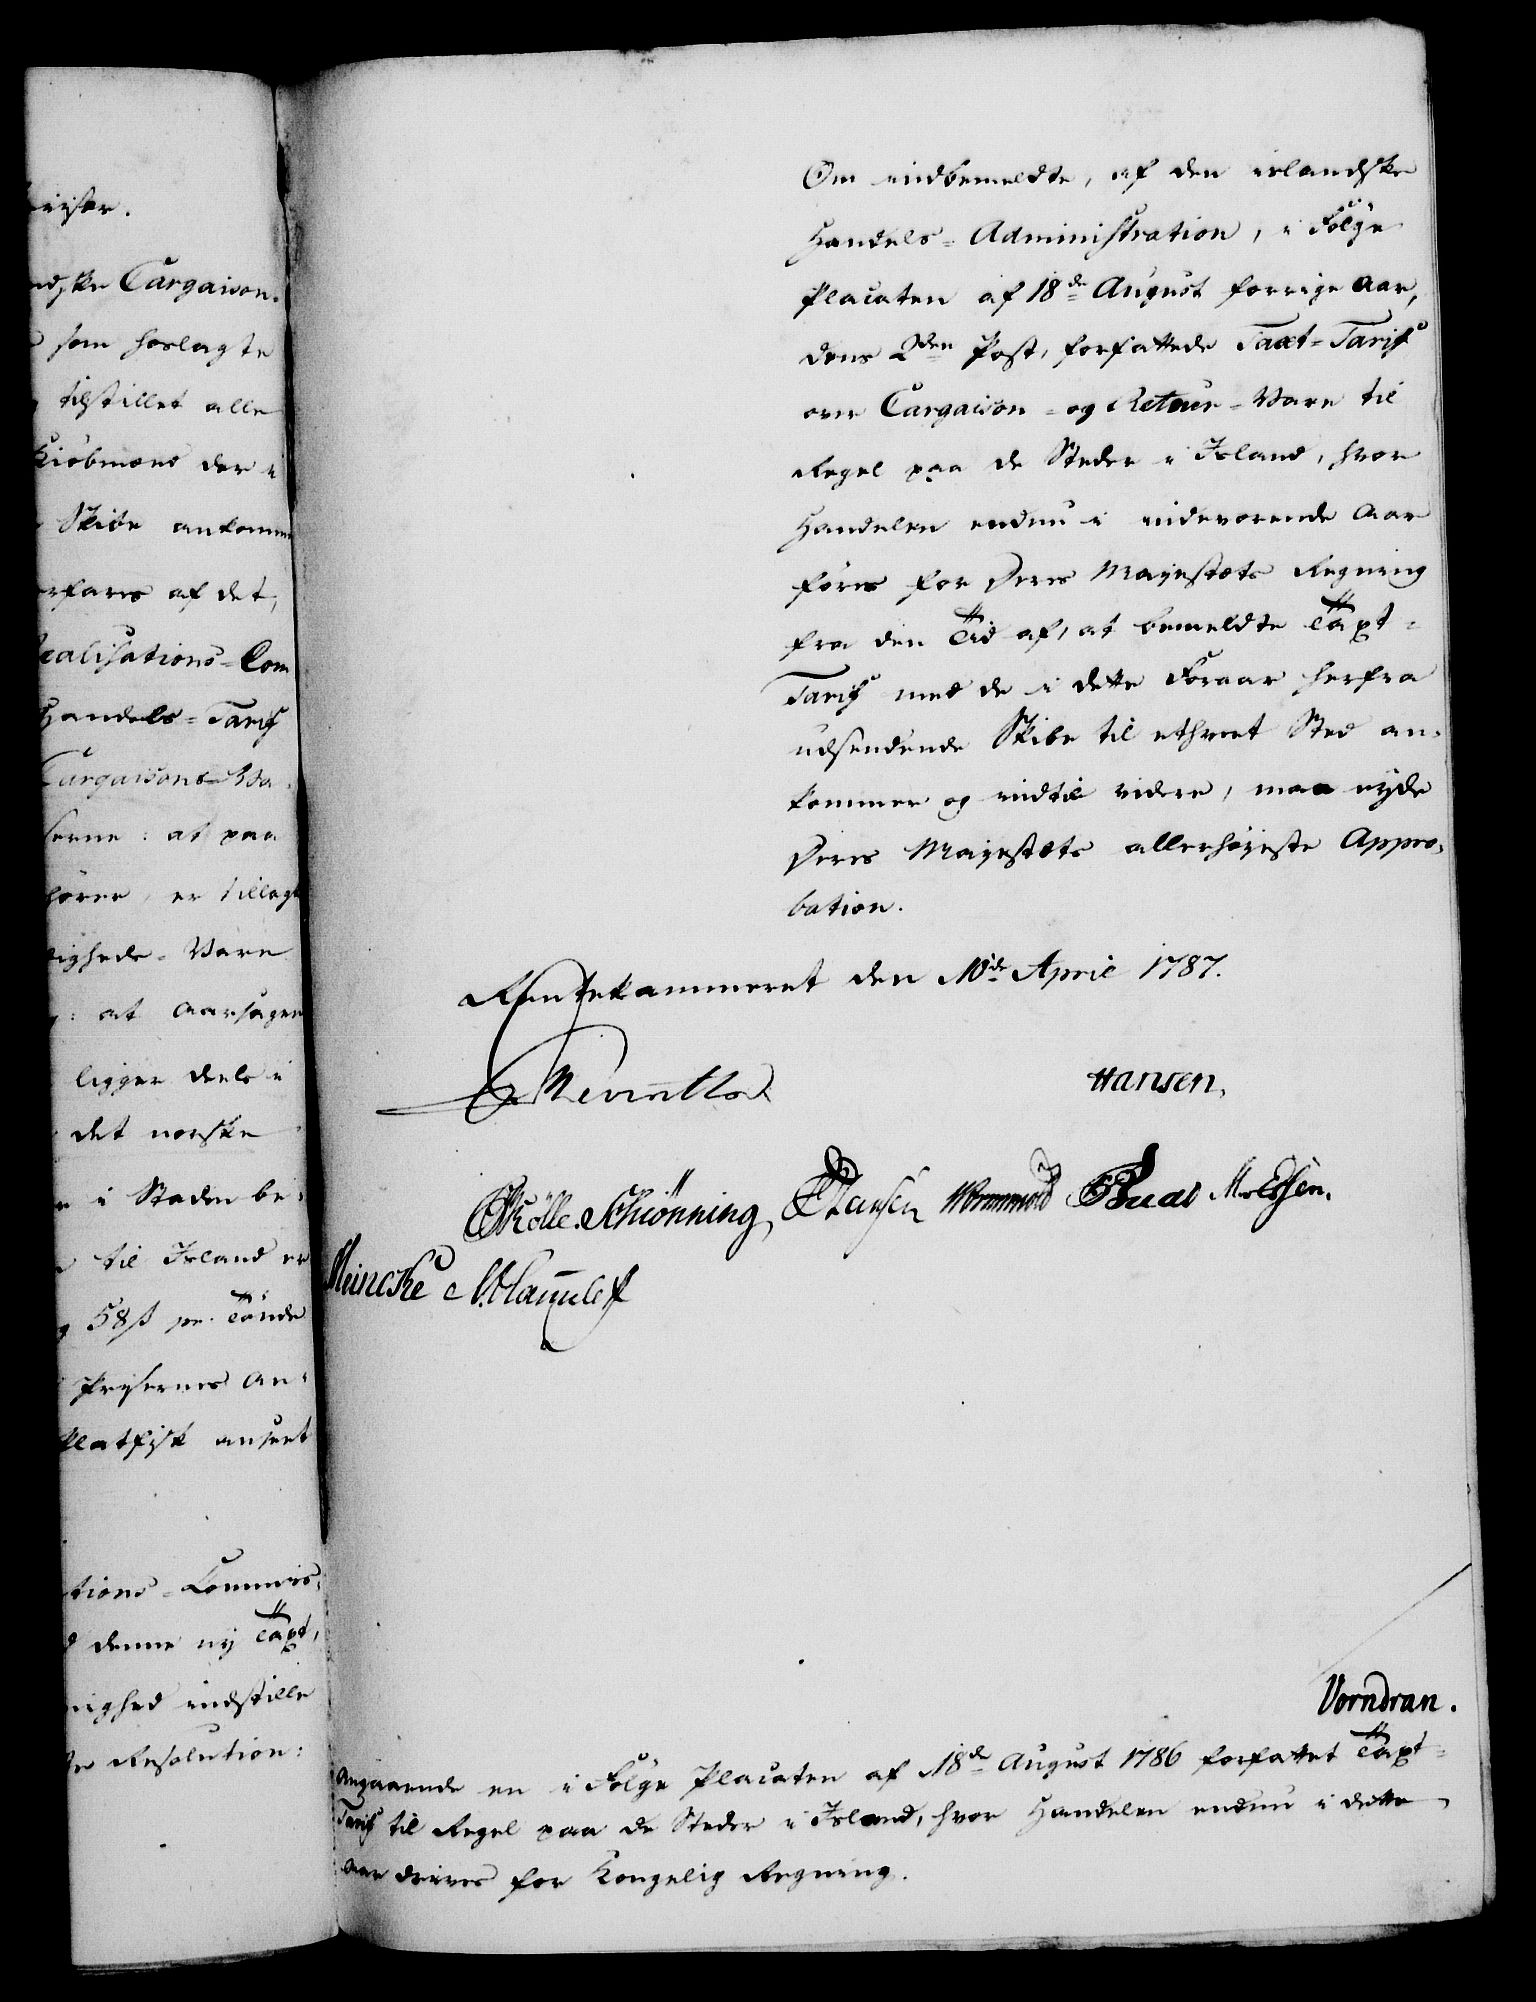 viser.
ndske Cargaison-
som heslagte
tilstillet alle
Kiöbmænd der i
Skibe ankomm
erfares af det,
Realisations-Com
Handels-Tarif
Cargaisons-Va-
serne: at paa
hörer, er tillagt
lighede-Vare
: at Aarsagen
ligger deels i
det norske
i Staden be-
til Island er
58 ß pr. Tönde
Prisernes An-
Platfisk anseet
tions-Commis-
denne ny Taxt,
nighed indstille
Resolution:
Om indbemeldte, af den islandske
Handels-Administration, i Fölge
Placaten af 18de August forrige Aar,
dens 2den Post, forfattede Taxt-Tarif
over Cargaison- og Retour-Vare til
Regel paa de Steder i Island, hvor
Handelen endnu i indeværende Aar
föres for Deres Majestæts Regning
fra den Tid af, at bemeldte Taxt-
Tarif med de i dette Foraar herfra
udsendende Skibe til ethvert Sted an-
kommer og indtil videre, maa nyde
Deres Majestæts allerhöjeste Appro-
bation.
Rentekammeret den 10de April 1787.
Reventlow
Hansen.
Schiönning, Hansen Wormskiold
Meincke
Vorndran.
Angaaende en i Fölge Placaten af 18de August 1786 forfattet Taxt-
Tarif til Regel paa de Steder i Island, hvor Handelen endnu i dette
Aar drives for Kongelig Regning.